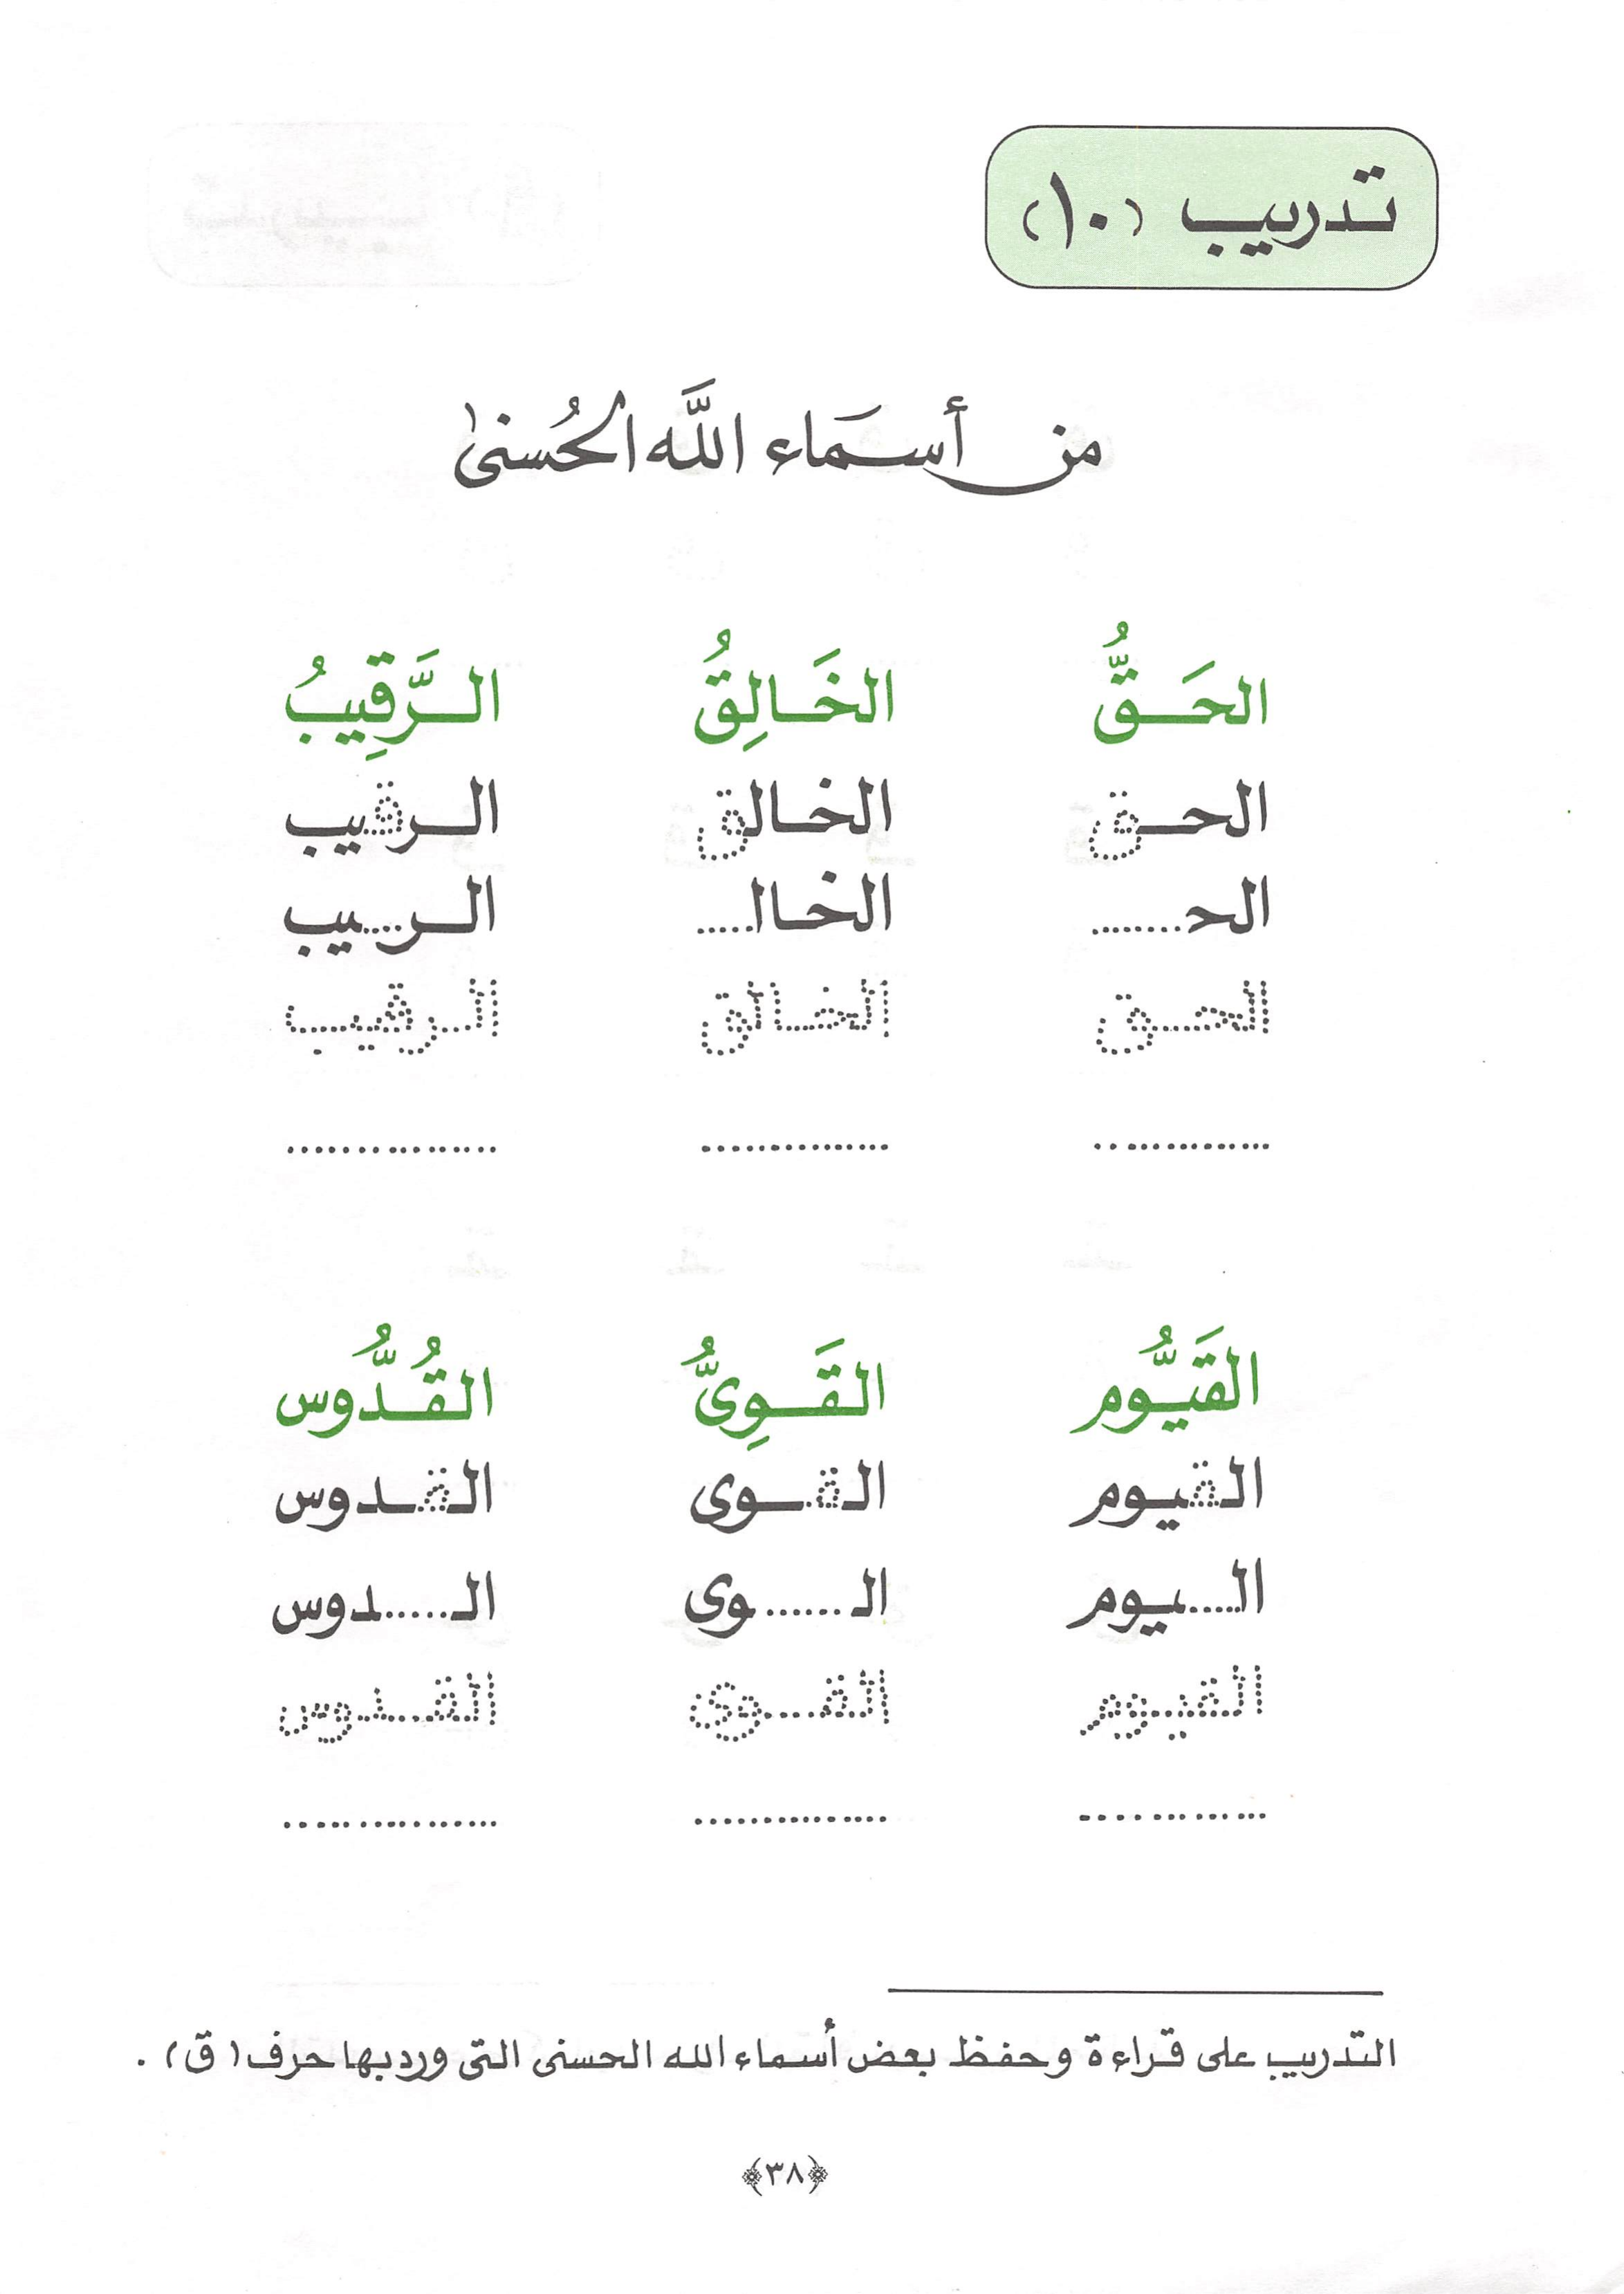 تدريب (١٠)
من أسَمَاء اللَّه الحُسنىٰ
الحَـقُّ الخَـالِقُ الـرَّقِيبُ
الحـق الخـالق الـرقيب
الحـ........ الخـالـ..... الـر....يب
الحـق الخـالق الـرقيب
............... ............... ...............
القَيُّوم القَـوِىُّ القُـدُّوس
القيوم القـوى القـدوس
الـ.....يوم الـ.......وى الـ......دوس
القيوم القـوى القـدوس
............... ............... ...............
التدريب على قراءة وحفظ بعض أسماء الله الحسنى التى ورد بها حرف (ق) .
﴿٣٨﴾